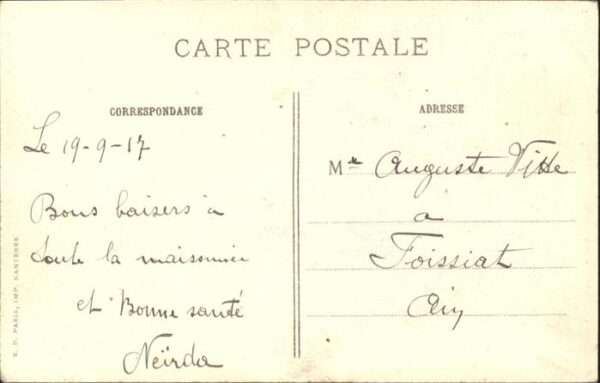 CARTE POSTALE
CORRESPONDANCE
Le 19-9-17
Bons baisers à
toute la maisonnée
et Bonne santé
Neïrda
ADRESSE
Mr Auguste Vitte
a
Foissiat
Ain
E. D. PARIS, IMP. NANTERRE